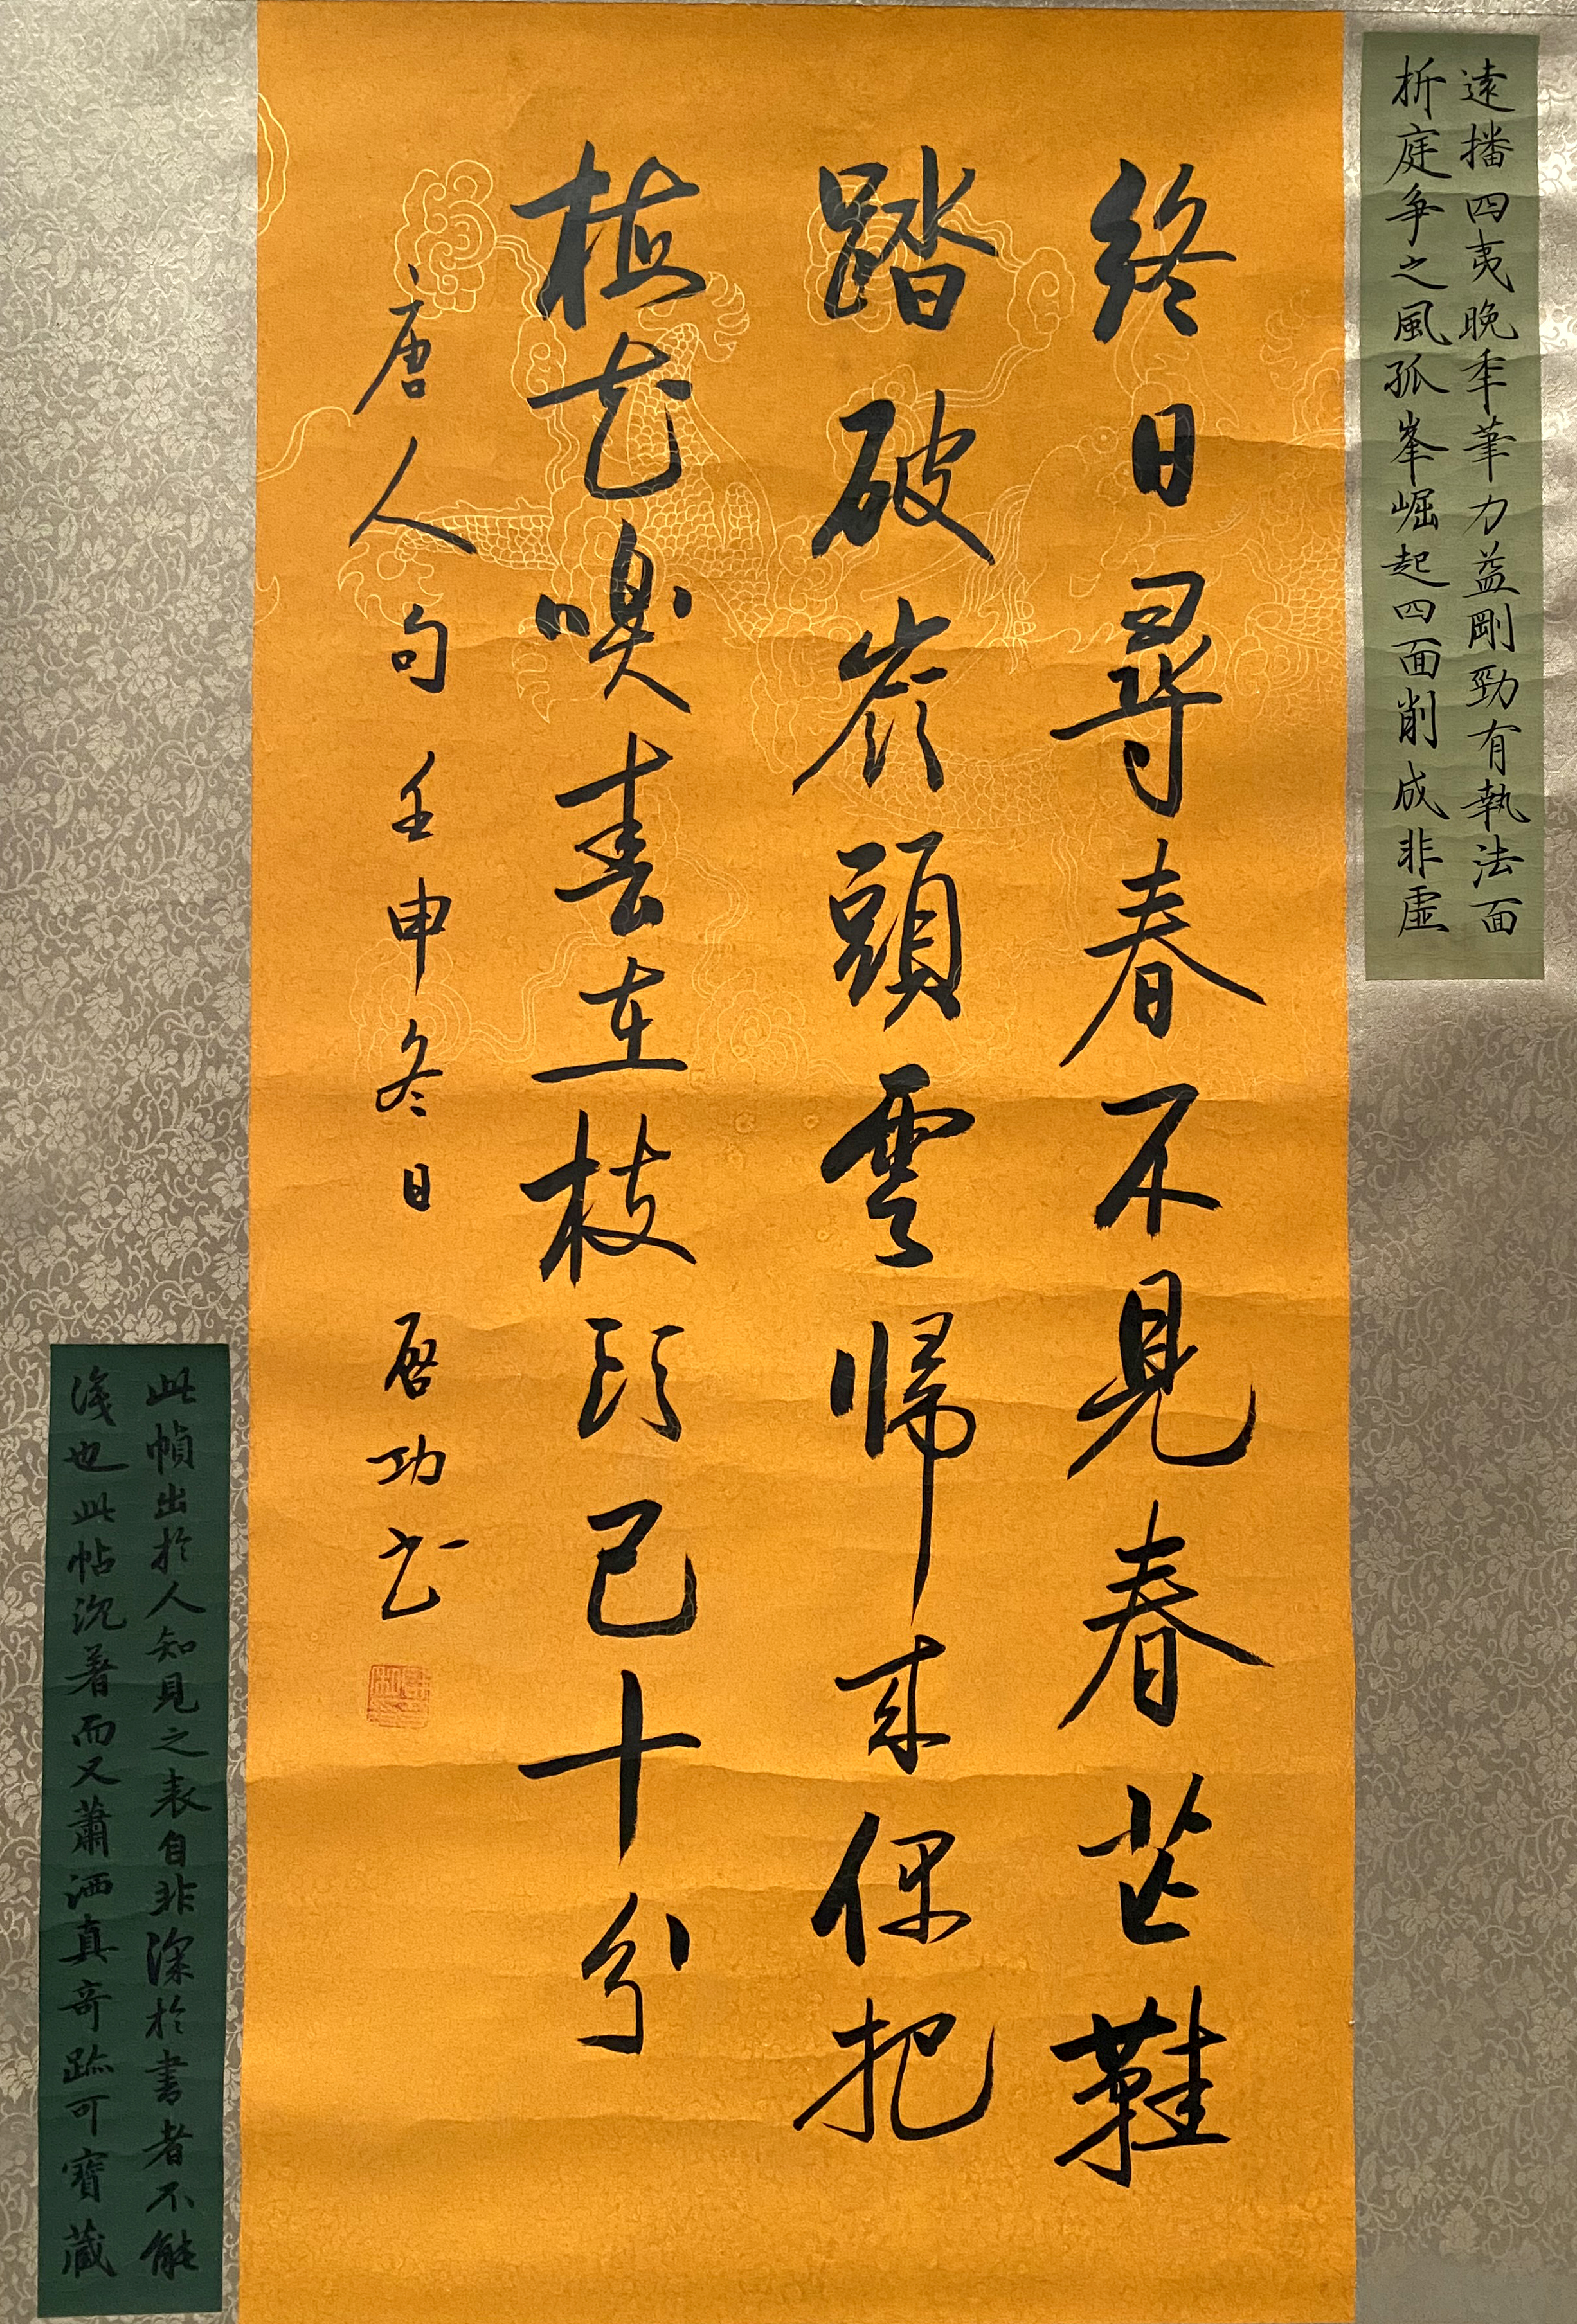 遠播四夷晚年筆力益剛勁有執法面
折庭爭之風孤峯崛起四面削成非虛
終日尋春不見春芒鞋
踏破嶺頭雲歸來偶把
梅花嗅春在枝頭已十分
唐人句壬申冬日 啟功書
此幀出於人知見之表自非深於書者不能
識也此帖沉著而又蕭洒真奇跡可寶藏